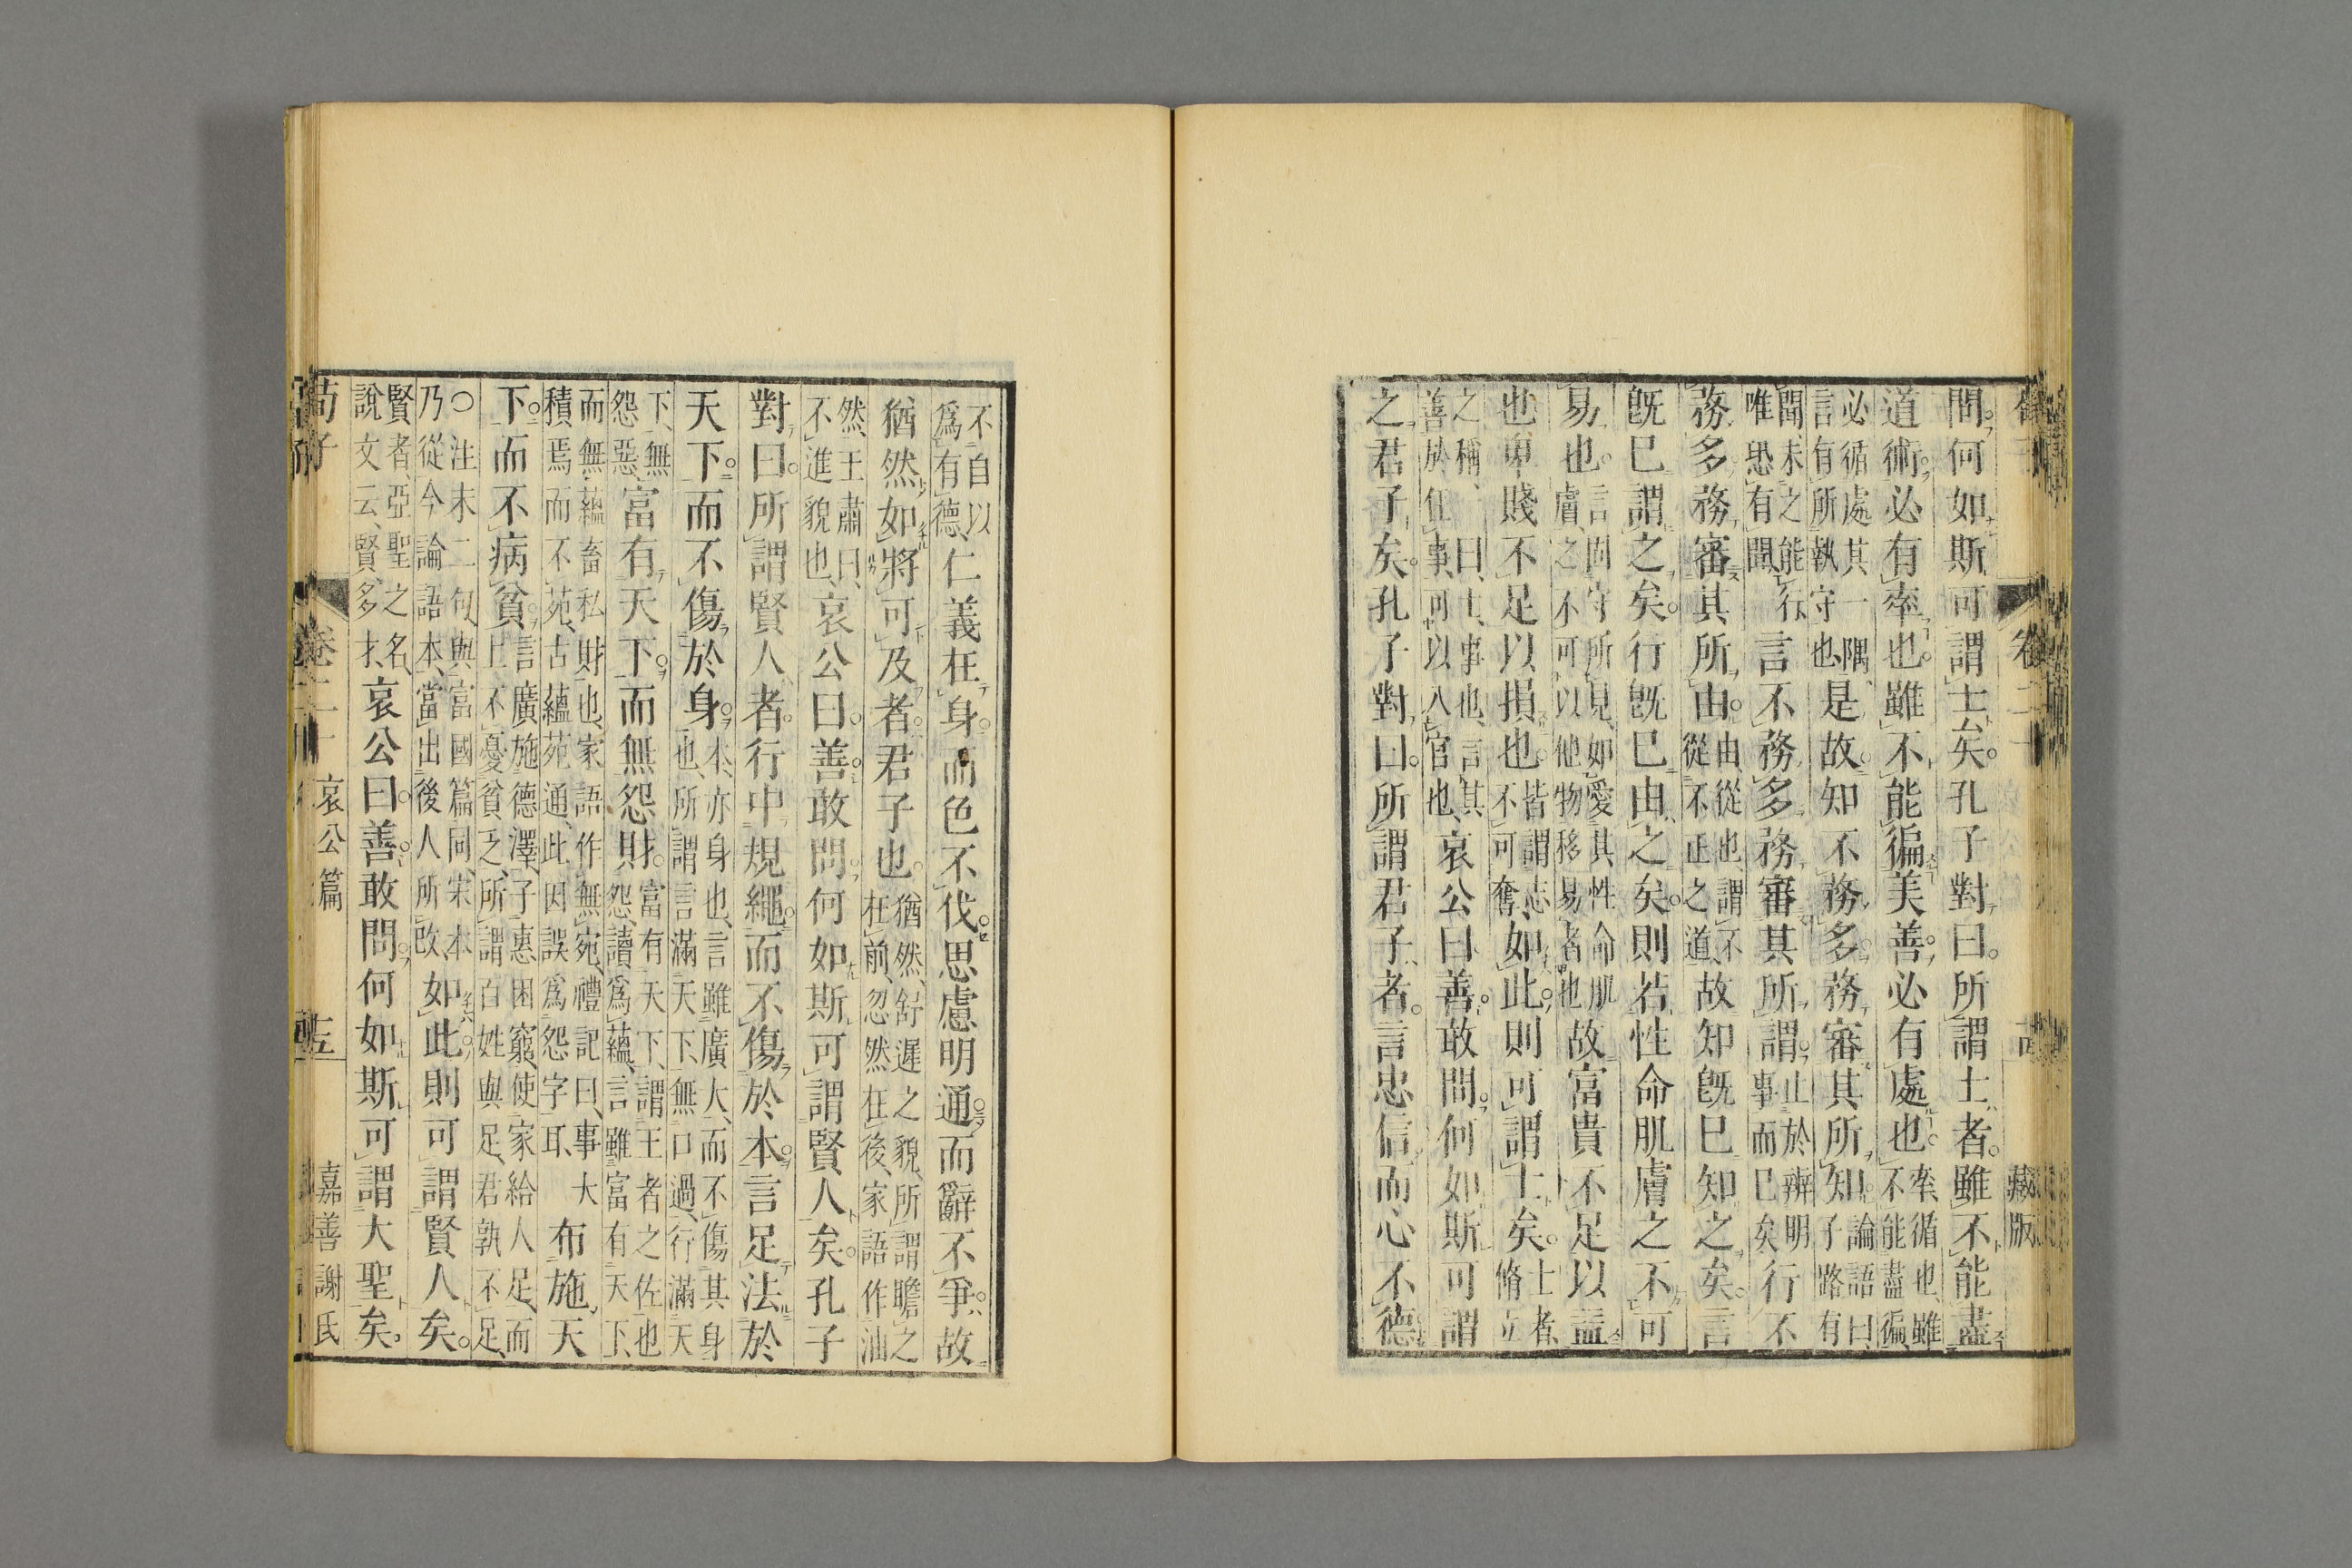 問何如斯可謂士矣孔子對曰所謂士者雖不能盡
道術必有率也雖不能徧美善必有處也率循也雖不能盡徧
必循處其一隅言有所執守也是故知不務多務審其所知論語曰子路有
聞未之能行唯恐有聞言不務多務審其所謂止於辨明事而已矣行不
務多務審其所由由從也謂不從不正之道故知旣已知之矣言
旣已謂之矣行旣已由之矣則若性命肌膚之不可
易也言固守所見如愛其性命肌膚之不可以他物移易者也故富貴不足以益
也卑賤不足以損也皆謂志不可奪如此則可謂士矣士者脩立
之稱一曰士事也言其善於任事可以入官也哀公曰善敢問何如斯可謂
之君子矣孔子對曰所謂君子者言忠信而心不德
卷二十
藏版
不自以爲有德仁義在身而色不伐思慮明通而辭不爭故
猶然如將可及者君子也猶然舒遲之貌所謂瞻之在前忽然在後家語作油
然王肅曰不進貌也哀公曰善敢問何如斯可謂賢人矣孔子
對曰所謂賢人者行中規繩而不傷於本言足法於
天下而不傷於身本亦身也言雖廣大而不傷其身也所謂言滿天下無口過行滿天
下無怨惡富有天下而無怨財富有天下謂王者之佐也怨讀爲蘊言雖富有天下
而無蘊畜私財也家語作無宛禮記曰事大積焉而不苑古蘊苑通此因誤爲怨字耳布施天
下而不病貧言廣施德澤子惠困窮使家給人足而上不憂貧乏所謂百姓與足君孰不足
〇注末二句與富國篇同宋本乃從今論語本當出後人所改如此則可謂賢人矣
賢者亞聖之名說文云賢多才哀公曰善敢問何如斯可謂大聖矣
荀子
卷二十
哀公篇
嘉善謝氏